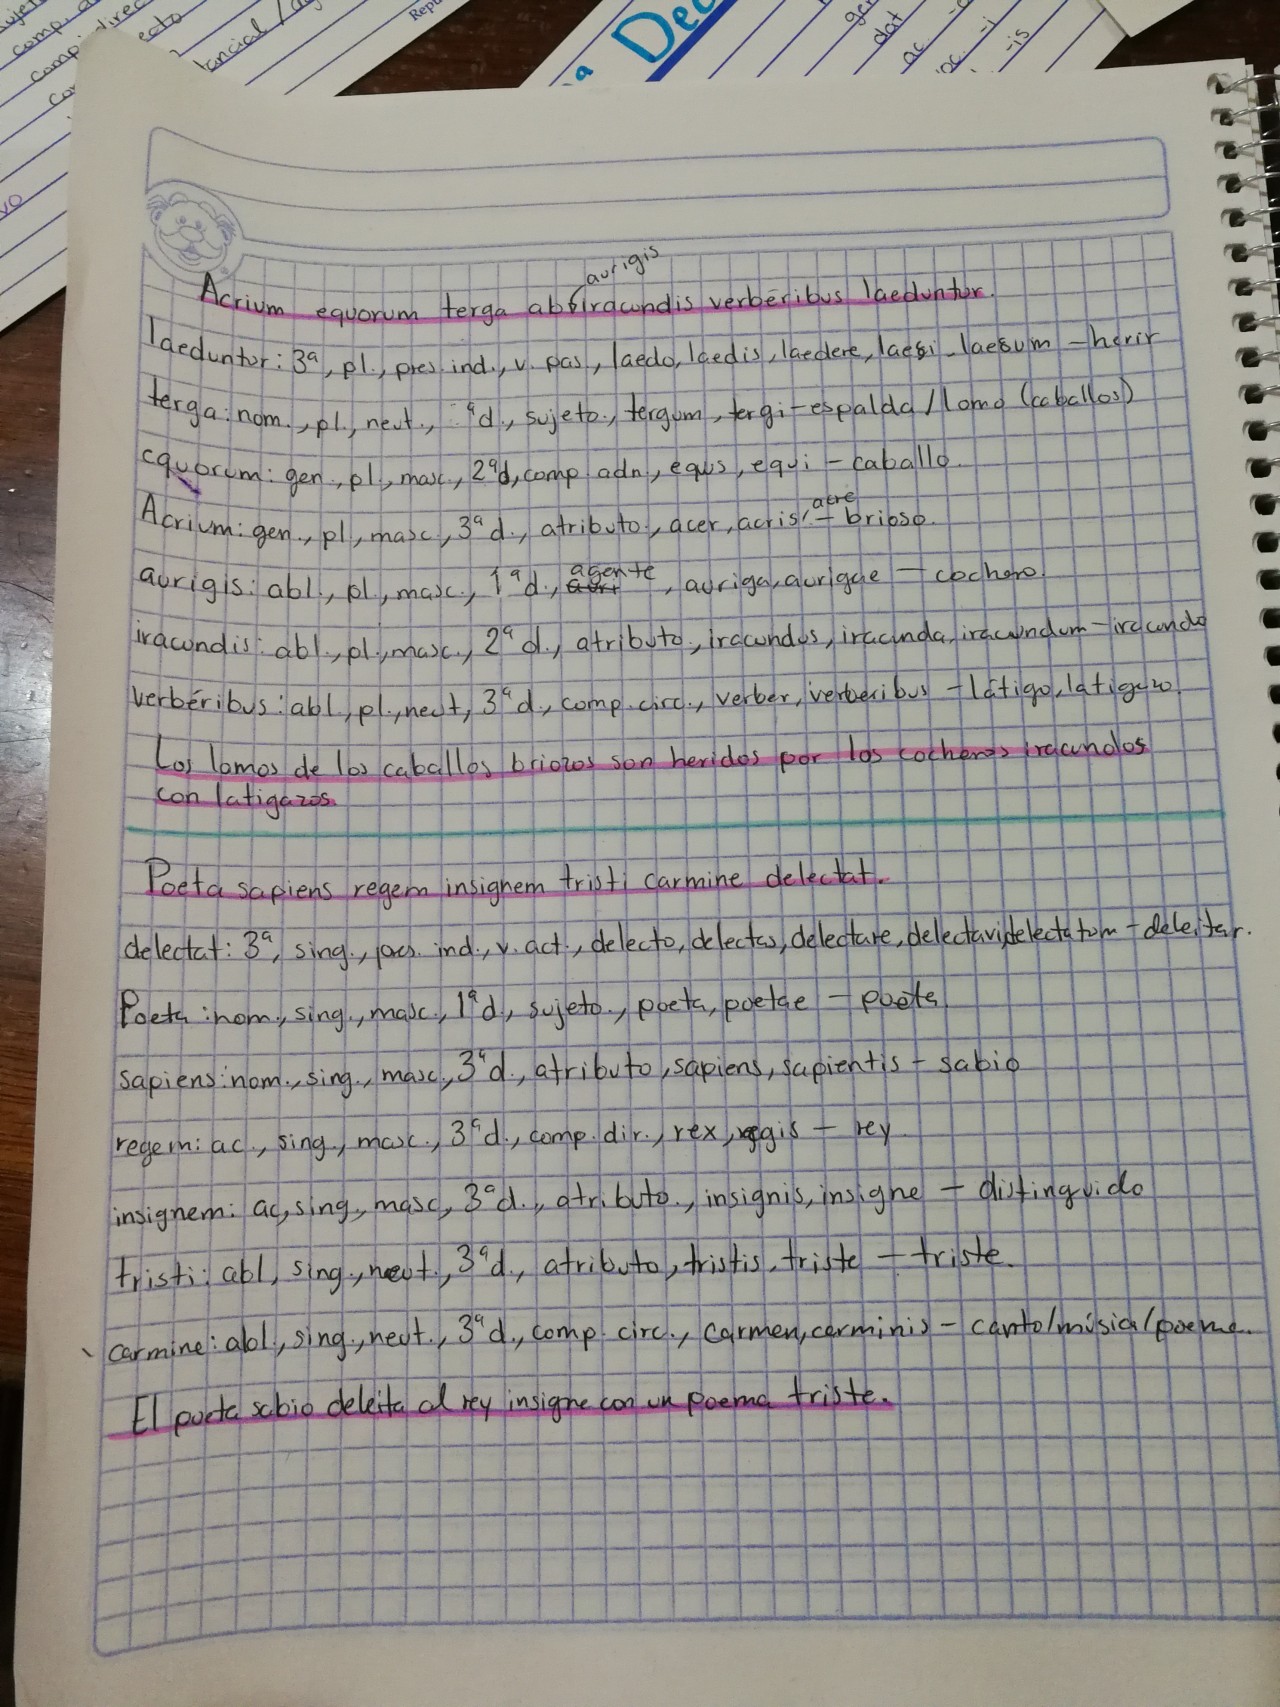 sujeto
comp. a
comp. direc
cto
ancial / a
Repú
a Dec
gen
dat
ac
-i
-is
vo
aurigis
Acrium equorum terga ab iracundis verbéribus laeduntur.
laeduntur: 3ª, pl., pres. ind., v. pas., laedo, laedis, laedere, laesi, laesum - herir
terga: nom., pl., neut., ªd., sujeto, tergum, tergi - espalda / lomo (caballos)
equorum: gen., pl., masc., 2ªd, comp. adn., equs, equi - caballo.
acre
Acrium: gen., pl., masc., 3ª d., atributo, acer, acris, - brioso.
agente
aurigis: abl., pl., masc., 1ª d., auri, auriga, aurigae - cochero.
iracundis: abl., pl., masc., 2ª d., atributo, iracundus, iracunda, iracundum - iracundo
verbéribus: abl., pl., neut, 3ª d., comp. circ., verber, verberibus - látigo, latigazo.
Los lomos de los caballos briozos son heridos por los cocheros iracundos
con latigazos.
Poeta sapiens regem insignem tristi carmine delectat.
delectat: 3ª, sing., pres. ind., v. act., delecto, delectas, delectare, delectavi, delectatum - deleitar.
Poeta: nom., sing., masc., 1ª d., sujeto, poeta, poetae - poeta
sapiens: nom., sing., masc., 3ª d., atributo, sapiens, sapientis - sabio
regem: ac., sing., masc., 3ª d., comp. dir., rex, regis - rey
insignem: ac, sing., masc, 3ª d., atributo., insignis, insigne - distinguido
tristi: abl, sing., neut., 3ª d., atributo, tristis, triste - triste.
carmine: abl., sing., neut., 3ª d., comp. circ., carmen, carminis - canto/música/poema.
El poeta sabio deleita al rey insigne con un poema triste.